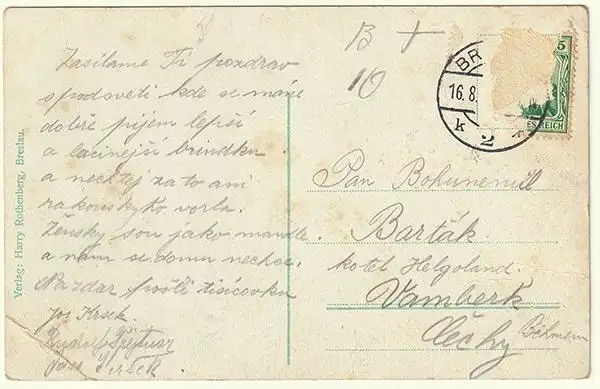 Zasílame Ti pozdrav
spodsvěti kde se máme
dobře pijem lepší
a lacinejší brindku
a nechtej za to ani
rakouskyho vorla.
Žensky sou jako mandle
a nám se domu nechce.
Nazdar pošli tisícovku
Jos Krsek.
Rudolf
B +
10
BR
16.8.
k 2
5
ES REICH
Pan Bohumemil
Barták.
hotel Helgoland.
Vamberk
Čechy Böhmen
Verlag: Harry Rothenberg, Breslau.